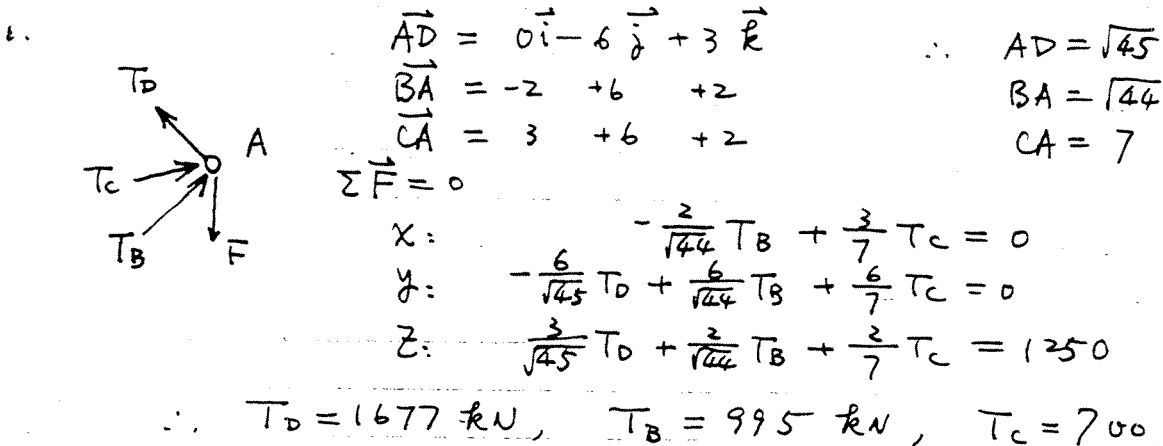 1.
AD = 0i - 6j + 3k ∴ AD = √45
BA = -2 +6 +2 BA = √44
CA = 3 +6 +2 CA = 7
T_D
A
T_C
T_B
F
ΣF = 0
x: -2/√44 T_B + 3/7 T_C = 0
y: -6/√45 T_D + 6/√44 T_B + 6/7 T_C = 0
Z: 3/√45 T_D + 2/√44 T_B + 2/7 T_C = 1250
∴ T_D = 1677 kN, T_B = 995 kN, T_C = 700